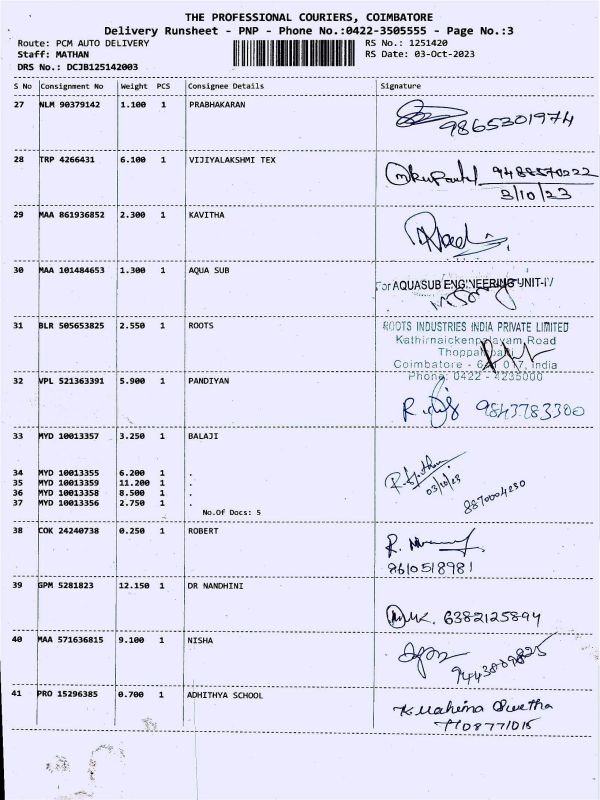 THE PROFESSIONAL COURIERS, COIMBATORE
Delivery Runsheet - PNP - Phone No.:0422-3505555 - Page No.:3
Route: PCM AUTO DELIVERY RS No.: 1251420
Staff: MATHAN RS Date: 03-Oct-2023
DRS No.: DCJB125142003
S No Consignment No Weight PCS Consignee Details Signature
27 NLM 90379142 1.100 1 PRABHAKARAN
9865301974
28 TRP 4266431 6.100 1 VIJIYALAKSHMI TEX
9488570222
3/10/23
29 MAA 861936852 2.300 1 KAVITHA
30 MAA 101484653 1.300 1 AQUA SUB
For AQUASUB ENGINEERING UNIT-IV
31 BLR 505653825 2.550 1 ROOTS
ROOTS INDUSTRIES INDIA PRIVATE LIMITED
Kathirnaickenpalayam Road
Coimbatore - 641 017, India
Phone: 0422 - 4235000
32 VPL 521363391 5.900 1 PANDIYAN
9843783300
33 MYD 10013357 3.250 1 BALAJI
34 MYD 10013355 6.200 1 .
35 MYD 10013359 11.200 1 .
36 MYD 10013358 8.500 1 .
37 MYD 10013356 2.750 1 .
03/10/23
8870004230
No.Of Docs: 5
38 COK 24240738 0.250 1 ROBERT
8610518981
39 GPM 5281823 12.150 1 DR NANDHINI
6382125894
40 MAA 571636815 9.100 1 NISHA
9443809825
41 PRO 15296385 0.700 1 ADHITHYA SCHOOL